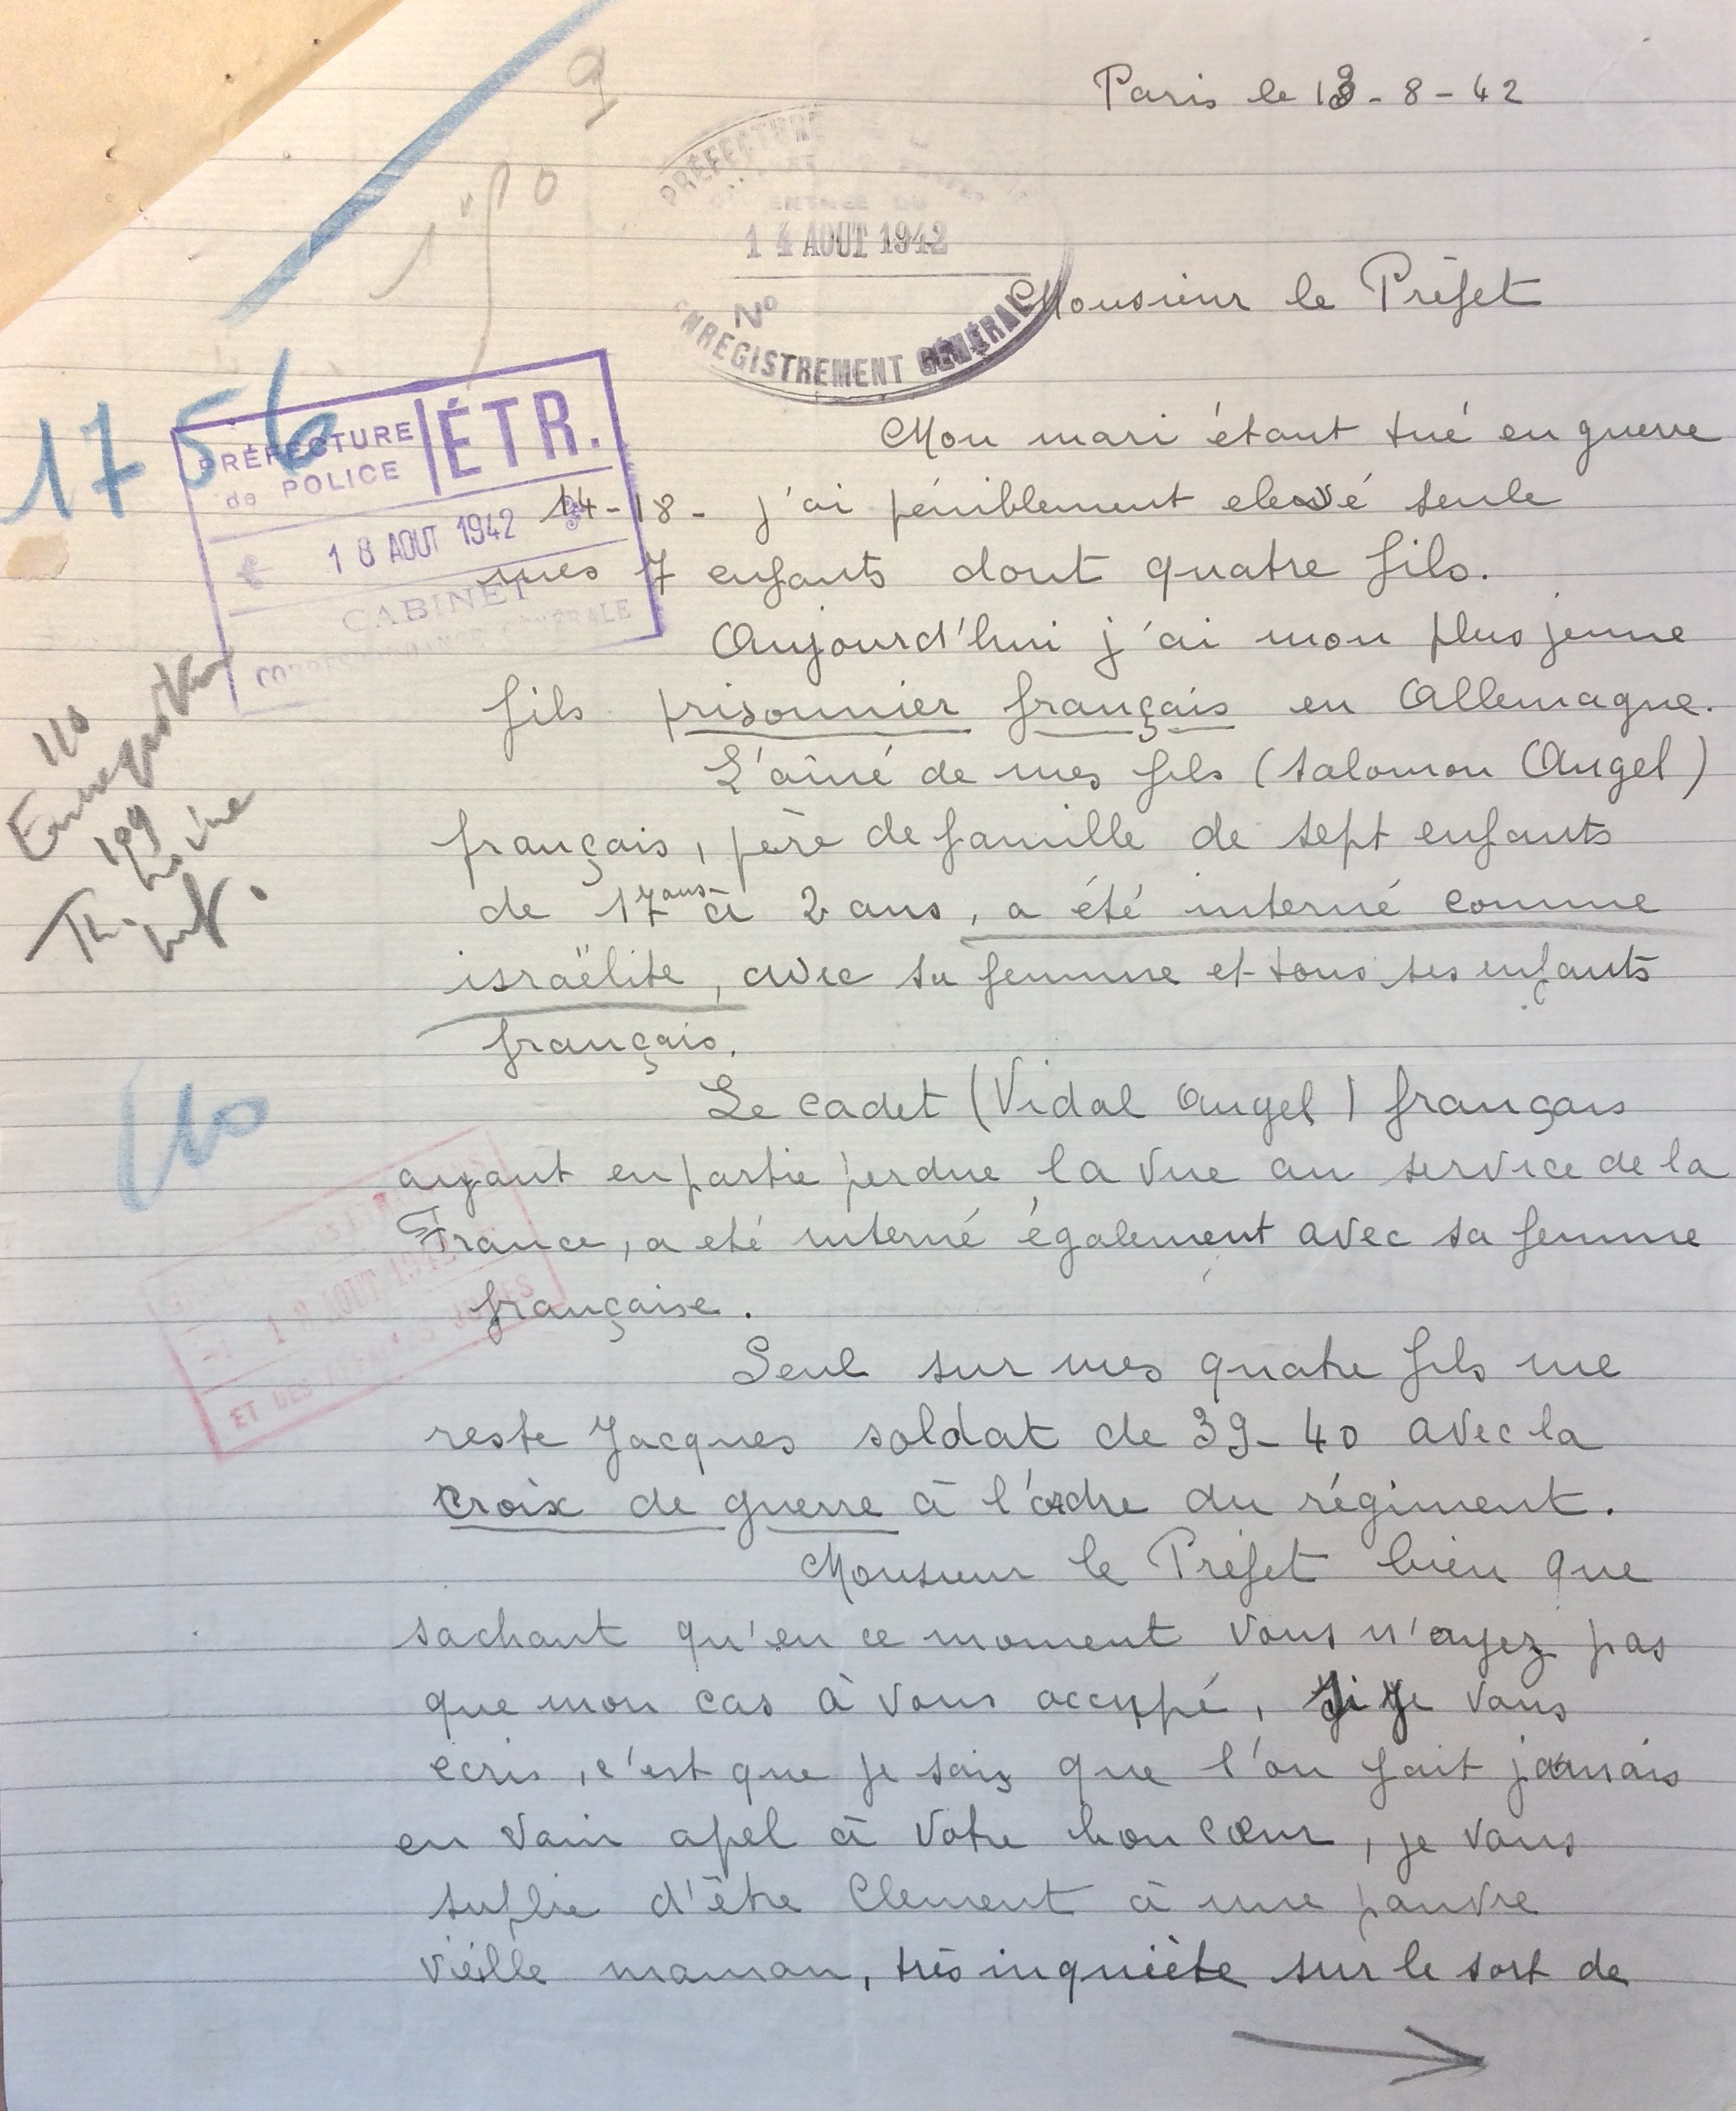 Paris le 13-8-42
PRÉFECTURE
ENTRÉE DU
14 AOUT 1942
No
ENREGISTREMENT GÉNÉRAL
Monsieur le Préfet
1756
PRÉFECTURE
de POLICE
ÉTR.
18 AOUT 1942
CABINET
CORRESPONDANCE GÉNÉRALE
Mon mari étant tué en guerre
14-18- j'ai péniblement elevé seule
mes 7 enfants dont quatre fils.
Aujourd'hui j'ai mon plus jeune
fils prisonnier français en Allemagne.
L'aîné de mes fils (Salomon Angel)
français, père de famille de sept enfants
de 17 ans à 2 ans, a été interné comme
israëlite, avec sa femme et tous ses enfants
français.
Le cadet (Vidal Angel) français
ayant en partie perdue la vue au service de la
France, a eté interné également avec sa femme
française.
18 AOUT 1942
ET DES JUIFS
Seul sur mes quatre fils me
reste Jacques soldat de 39-40 avec la
croix de guerre à l'ordre du régiment.
Monsieur le Préfet bien que
sachant qu'en ce moment vous n'ayez pas
que mon cas à vous occupé, Si je vous
écris, c'est que je sais que l'on fait jamais
en vain apel à votre bon cœur, je vous
suplie d'être Clement à une pauvre
vieille maman, très inquiète sur le sort de